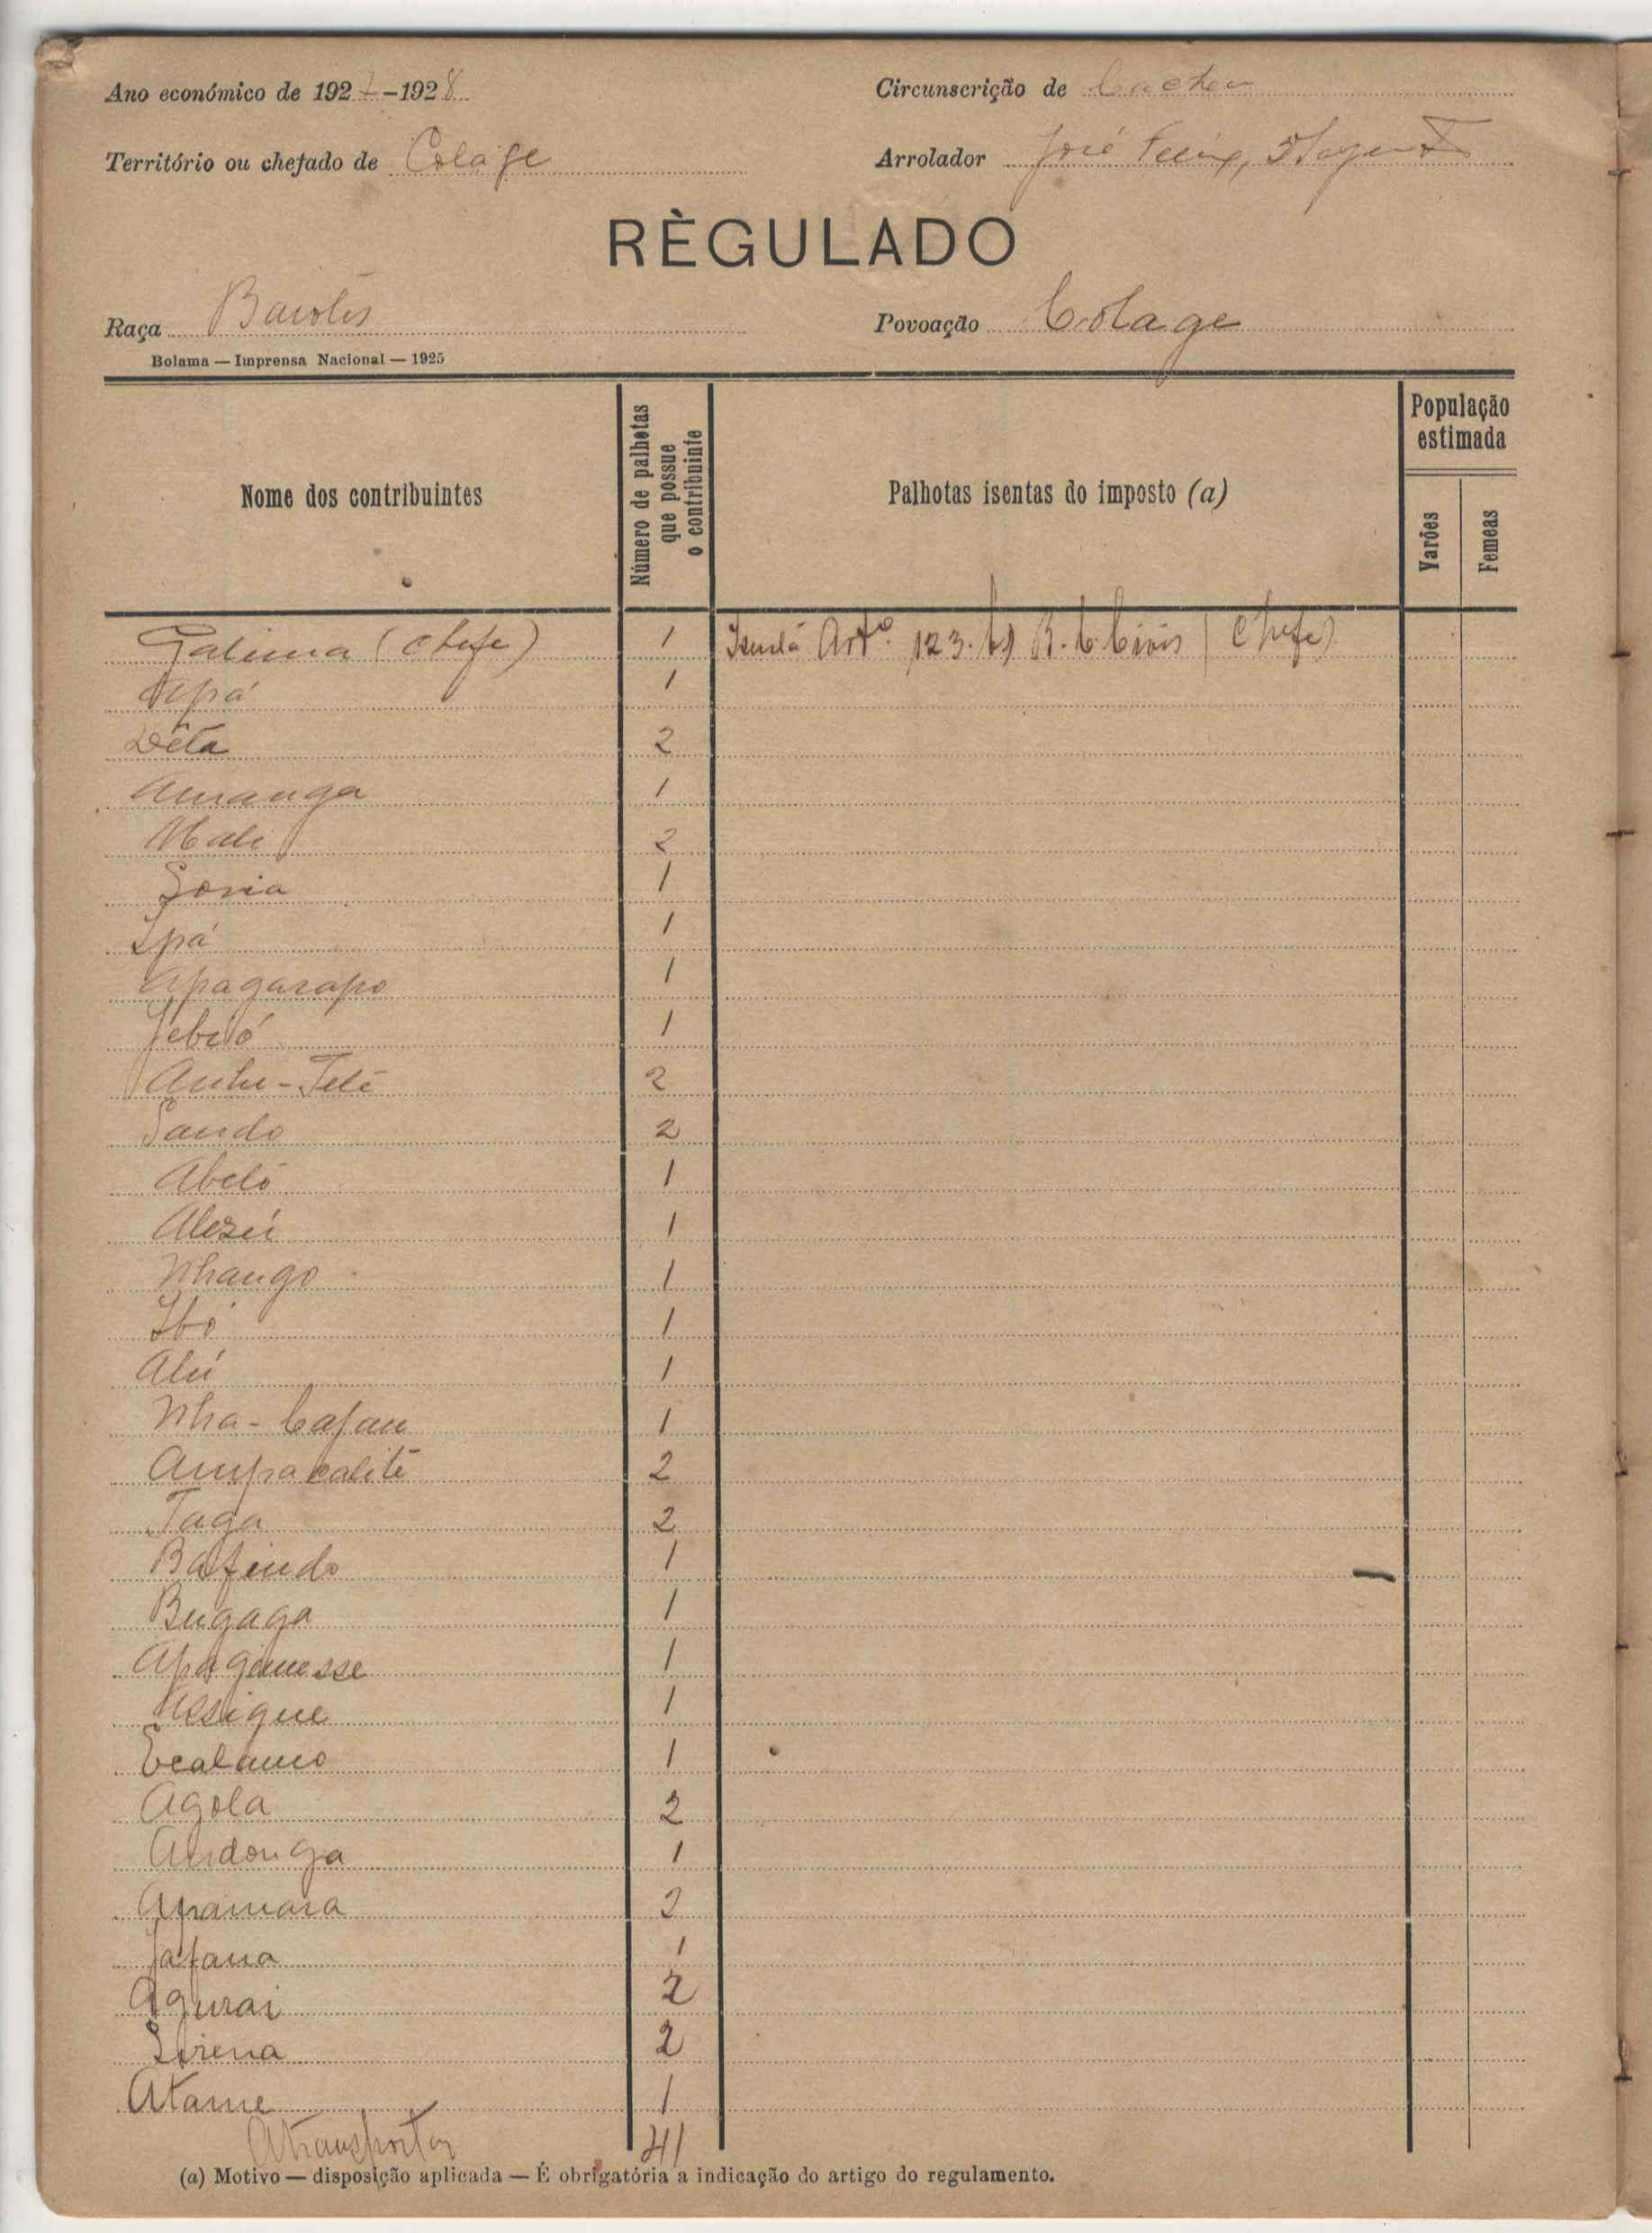 Ano económico de 1927-1928 Circunscrição de Cacheu
Território ou chefado de Colage Arrolador José
RÈGULADO
Raça Baiotes Povoação Colage
Bolama — Imprensa Nacional — 1925
Nome dos contribuintes
Número de palhotas
que possue
o contribuinte
Palhotas isentas do imposto (a)
População
estimada
Varões Femeas
Galima (chefe) 1 Art.º 123. R. C. Civis (Chefe)
Apá 1
Dêta 2
Amanga 1
Mali 2
Sonia 1
Ipá 1
Apagarapo 1
1
2
Sando 2
Abeló 1
1
Nhango 1
Ibó 1
Alú 1
Nha-Cajau 1
Ampacalité 2
Taga 2
Bafindo 1
Bugaga 1
Apagimesse 1
Assigue 1
Ecalamo 1
Agola 2
Andonga 1
Apamara 2
Jafana 1
Agurai 2
Sirena 2
Atame 1
A transportar 41
(a) Motivo — disposição aplicada — É obrigatória a indicação do artigo do regulamento.